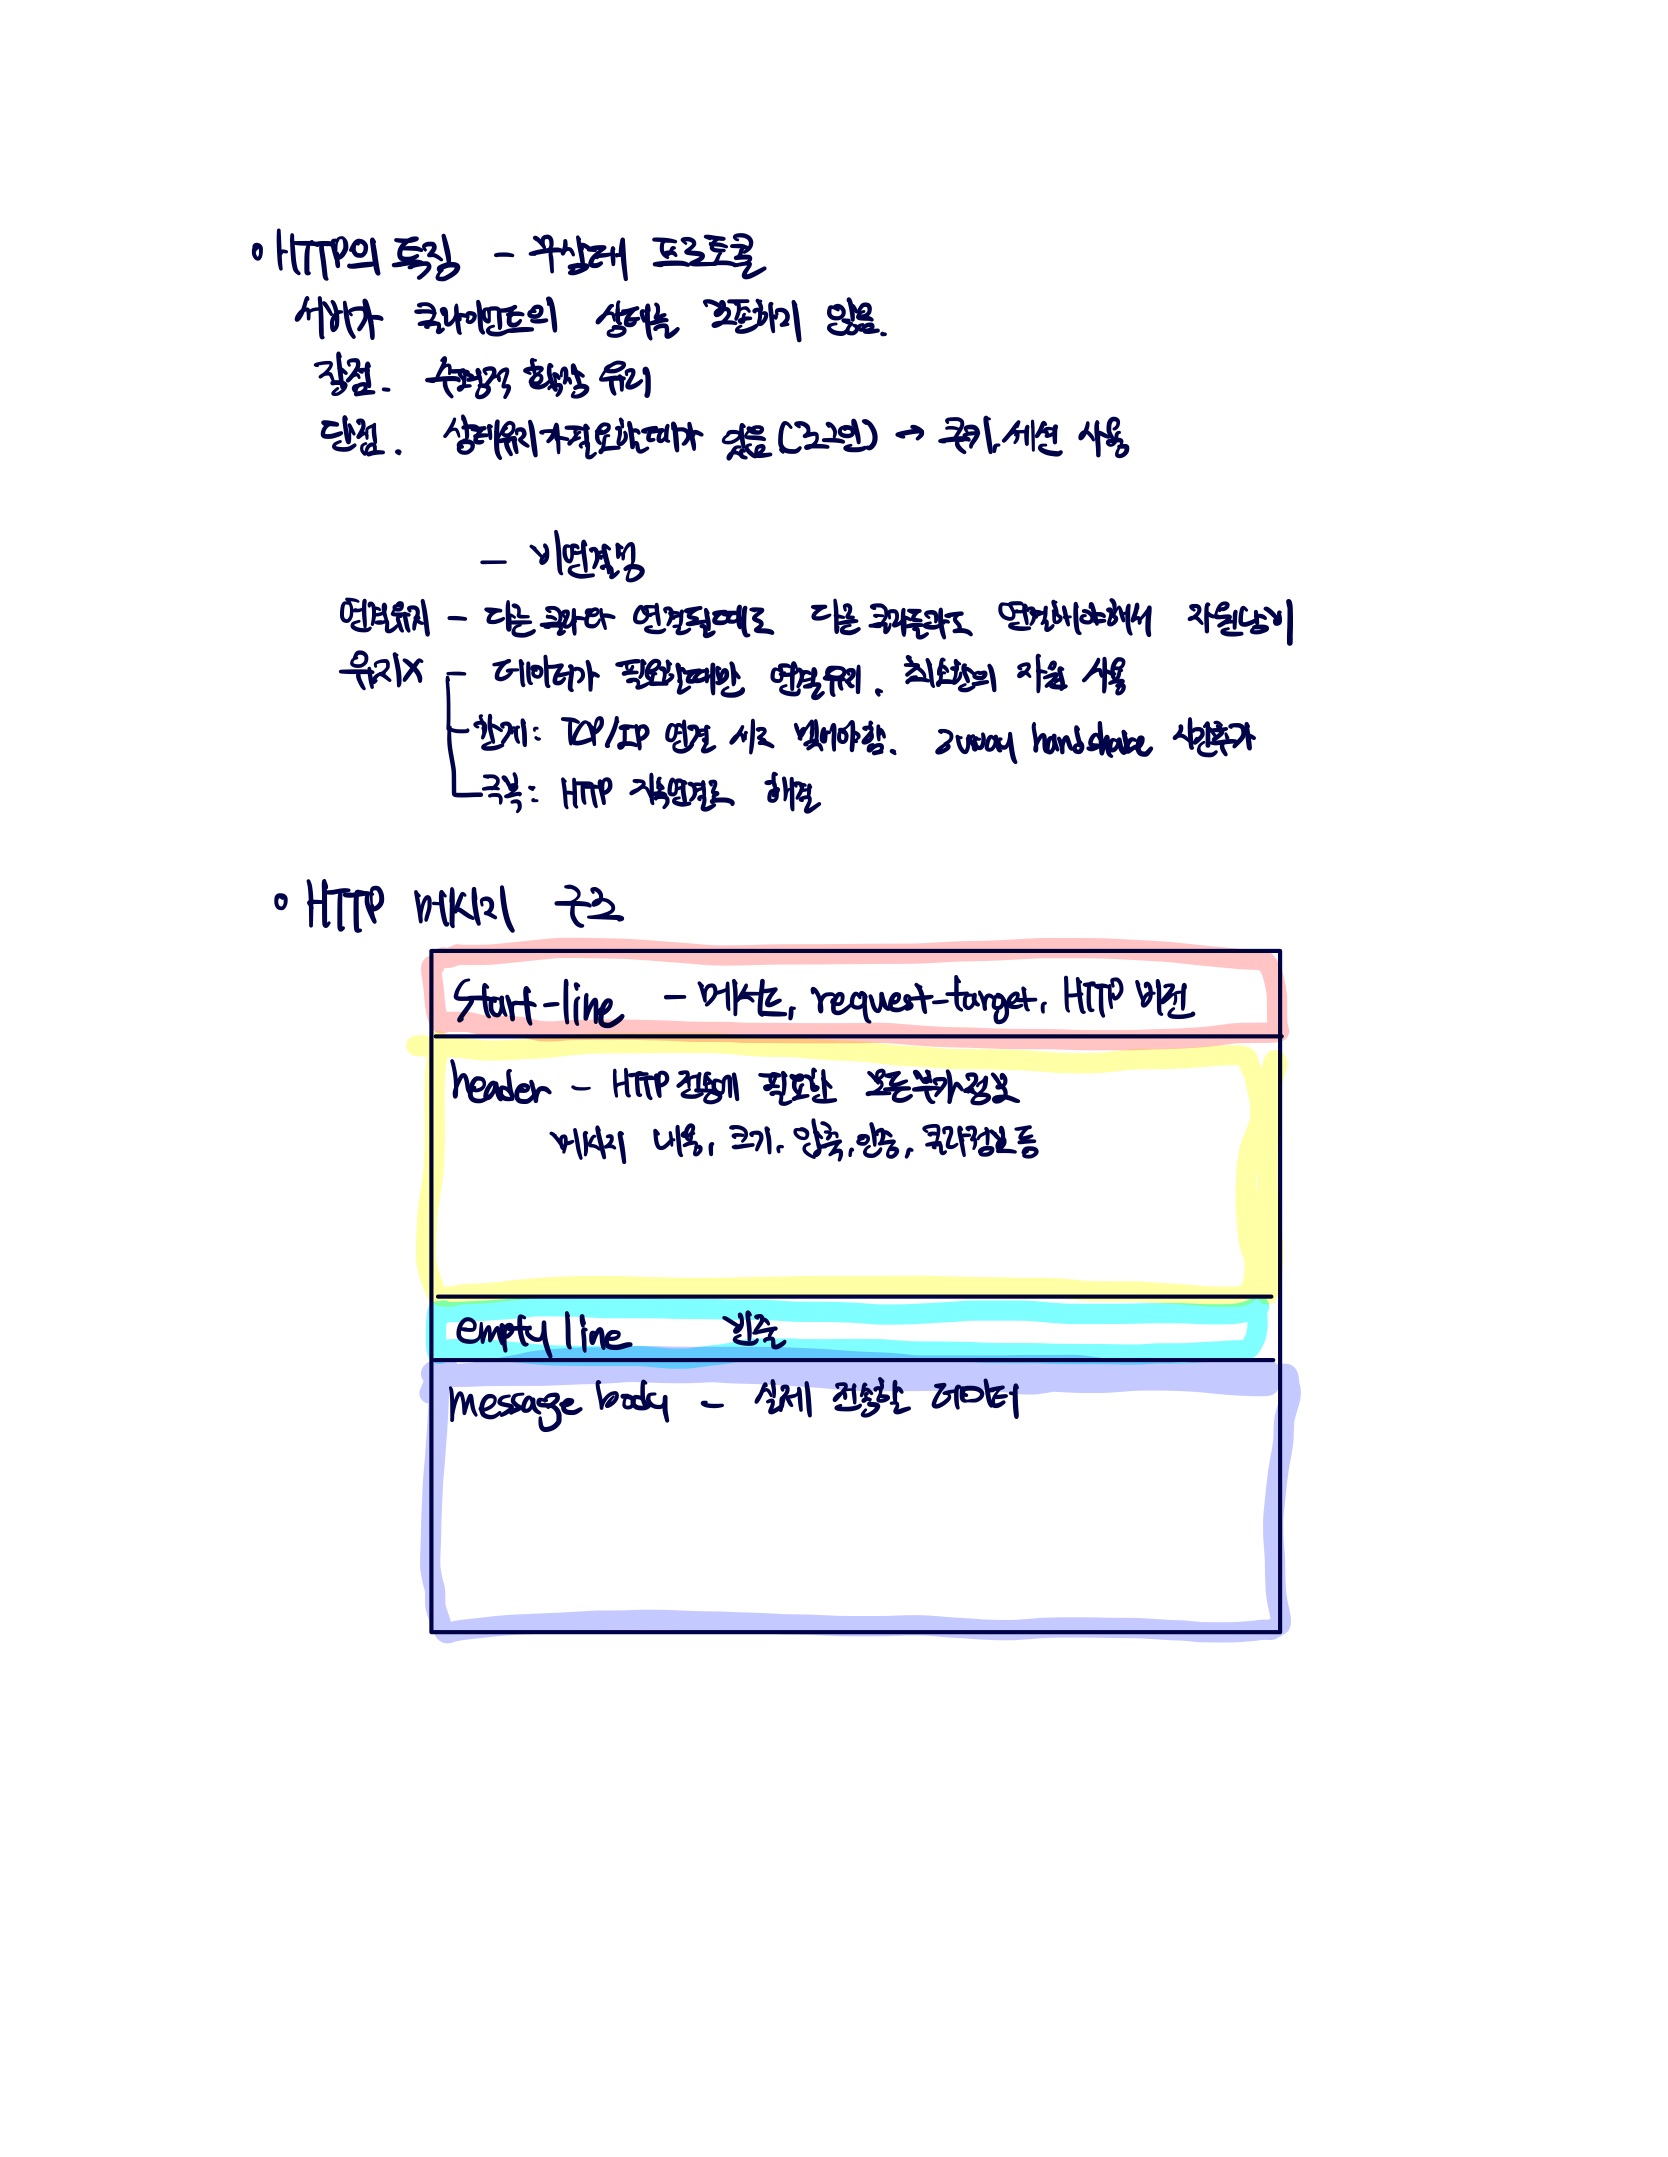 HTTP의 특징 - 무상태 프로토콜
서버가 클라이언트의 상태를 보존하지 않음.
장점. 수평적 확장 유리
단점. 상태유지가 필요할때가 있음 (로그인) → 쿠키, 세션 사용
- 비연결성
연결유지 - 다른 클라와 연결될때로 다른 클라들과도 연결해야해서 자원낭비
유지X - 데이터가 필요할때만 연결유지. 최소한의 자원 사용
한계: TCP/IP 연결 새로 맺어야함. 3 way handshake 시간추가
극복: HTTP 지속연결로 해결
HTTP 메시지 구조
Start-line - 메서드, request-target, HTTP 버전
header - HTTP 전송에 필요한 모든 부가정보
메시지 내용, 크기, 압축, 인증, 클라정보 등
empty line 빈줄
message body - 실제 전송할 데이터